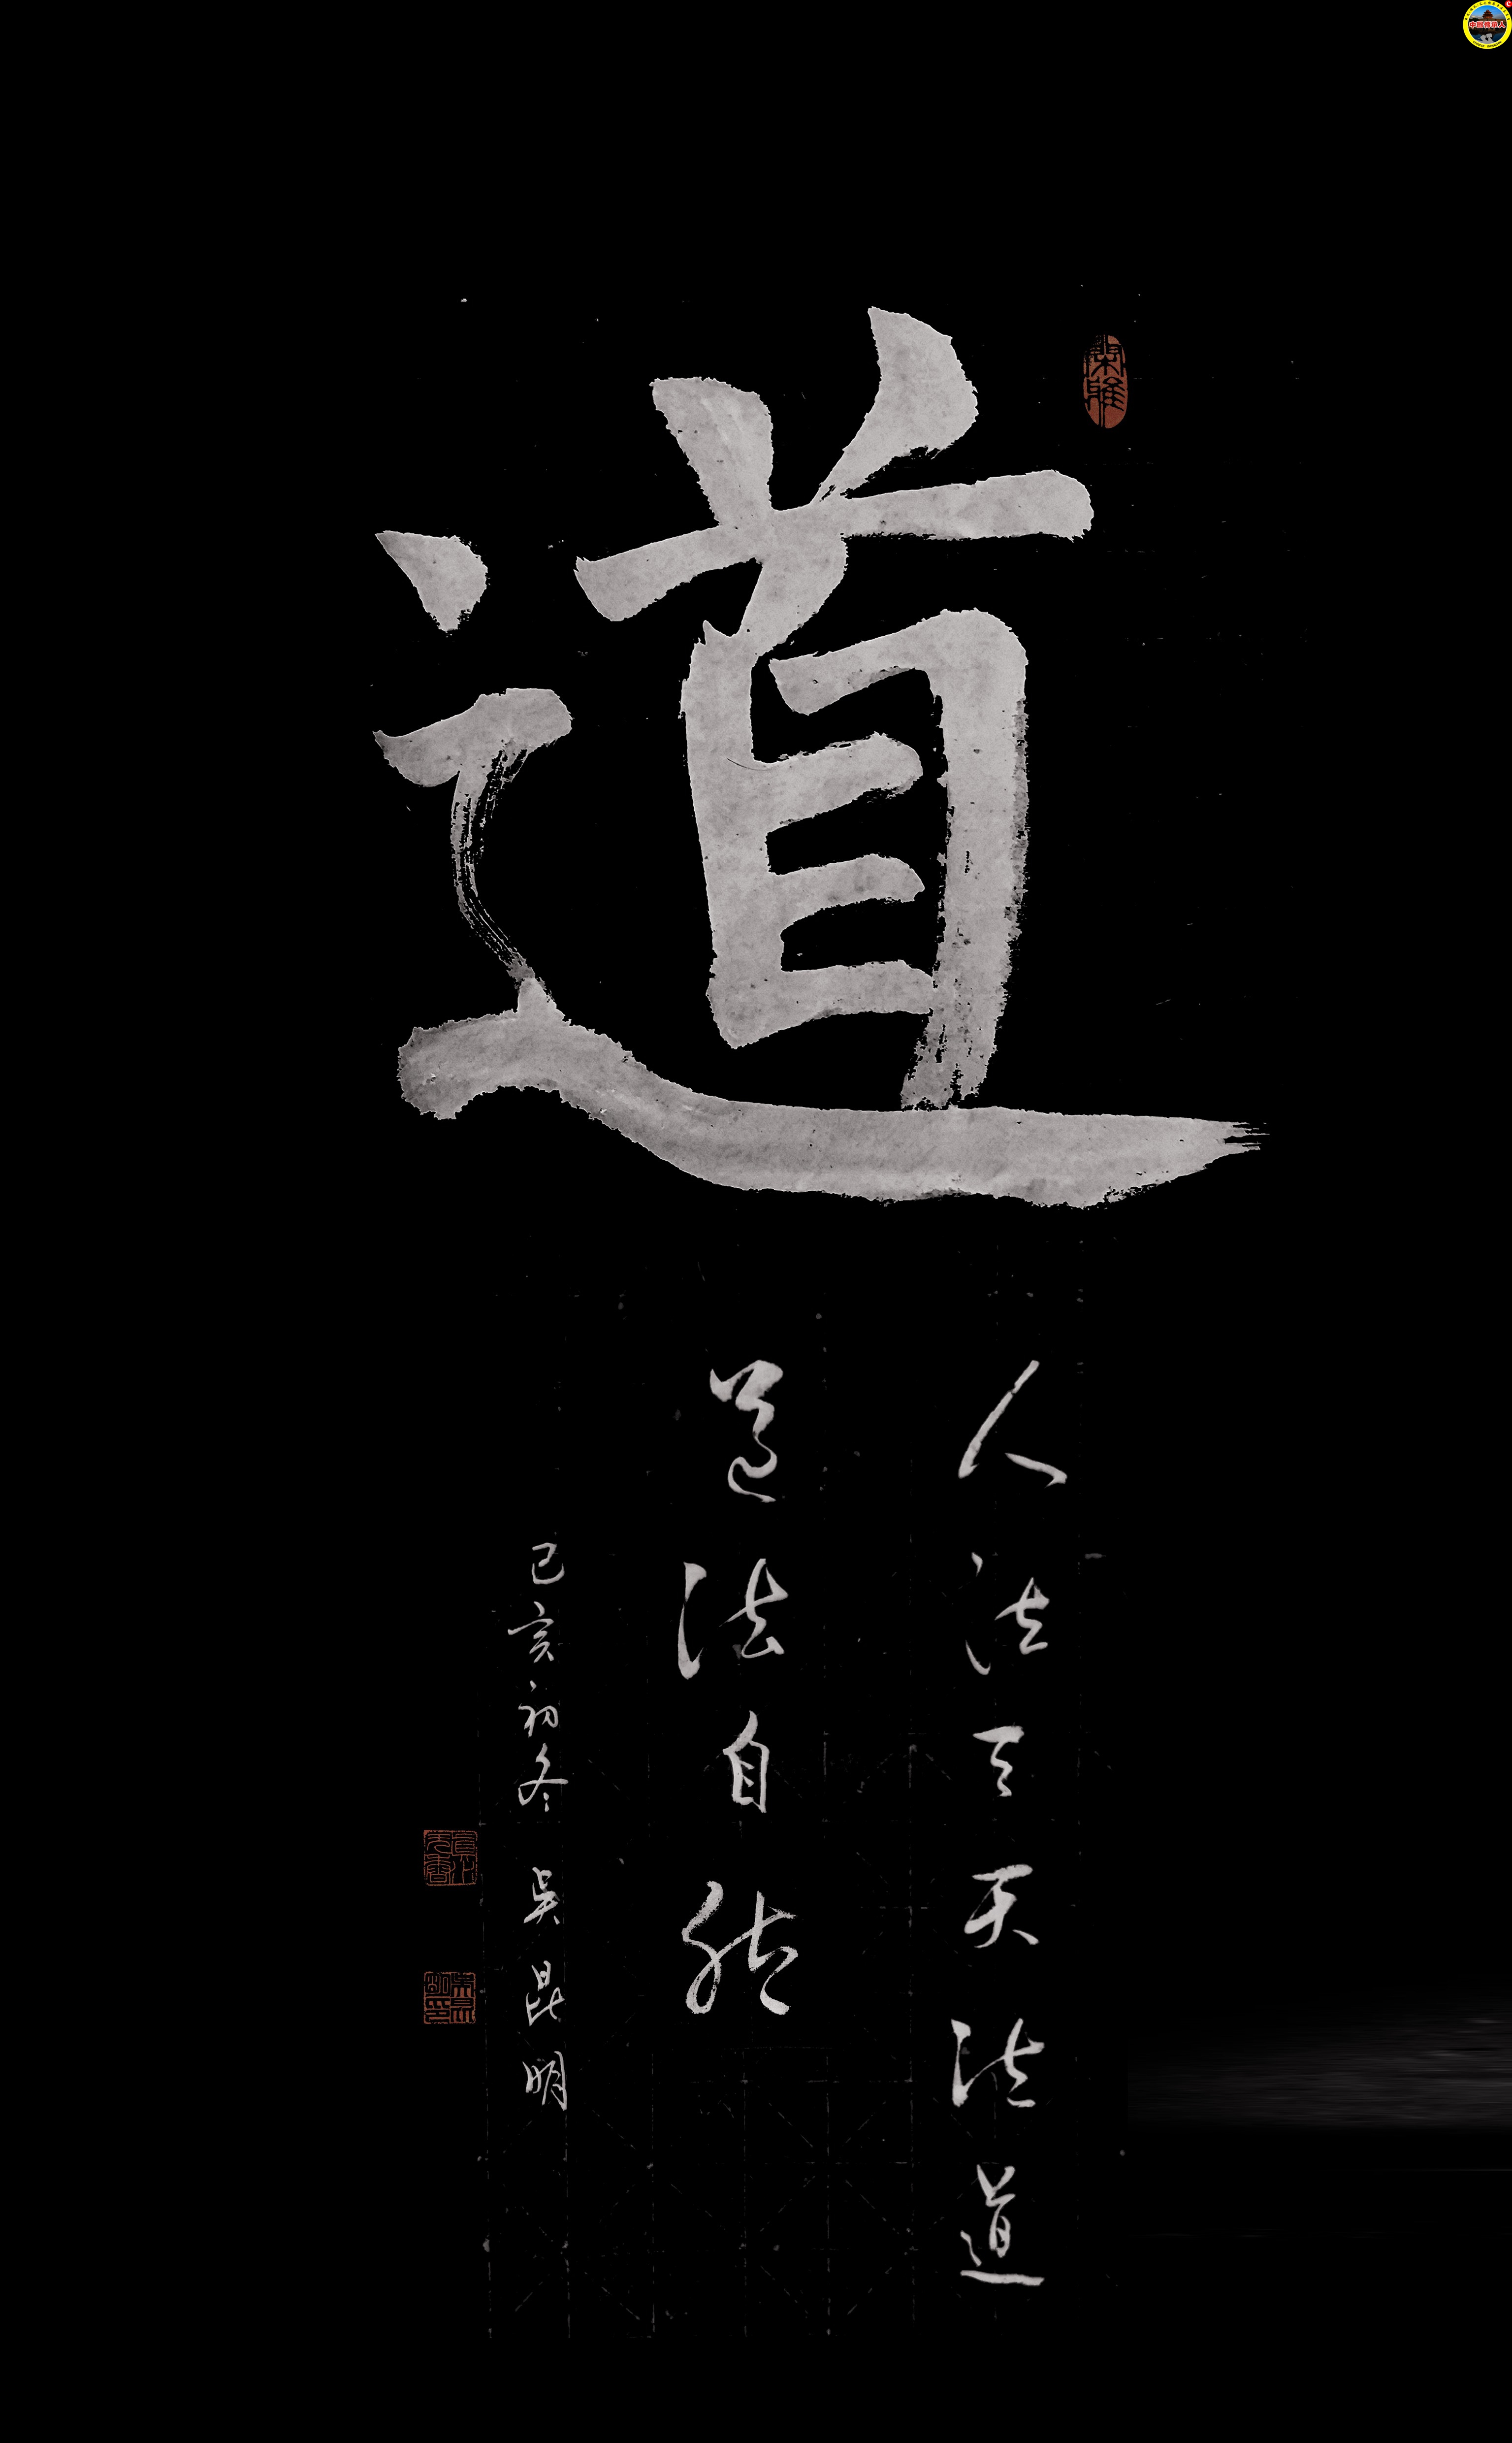 道
閑雅
人法天天法道
道法自然
己亥初冬 吳昆明